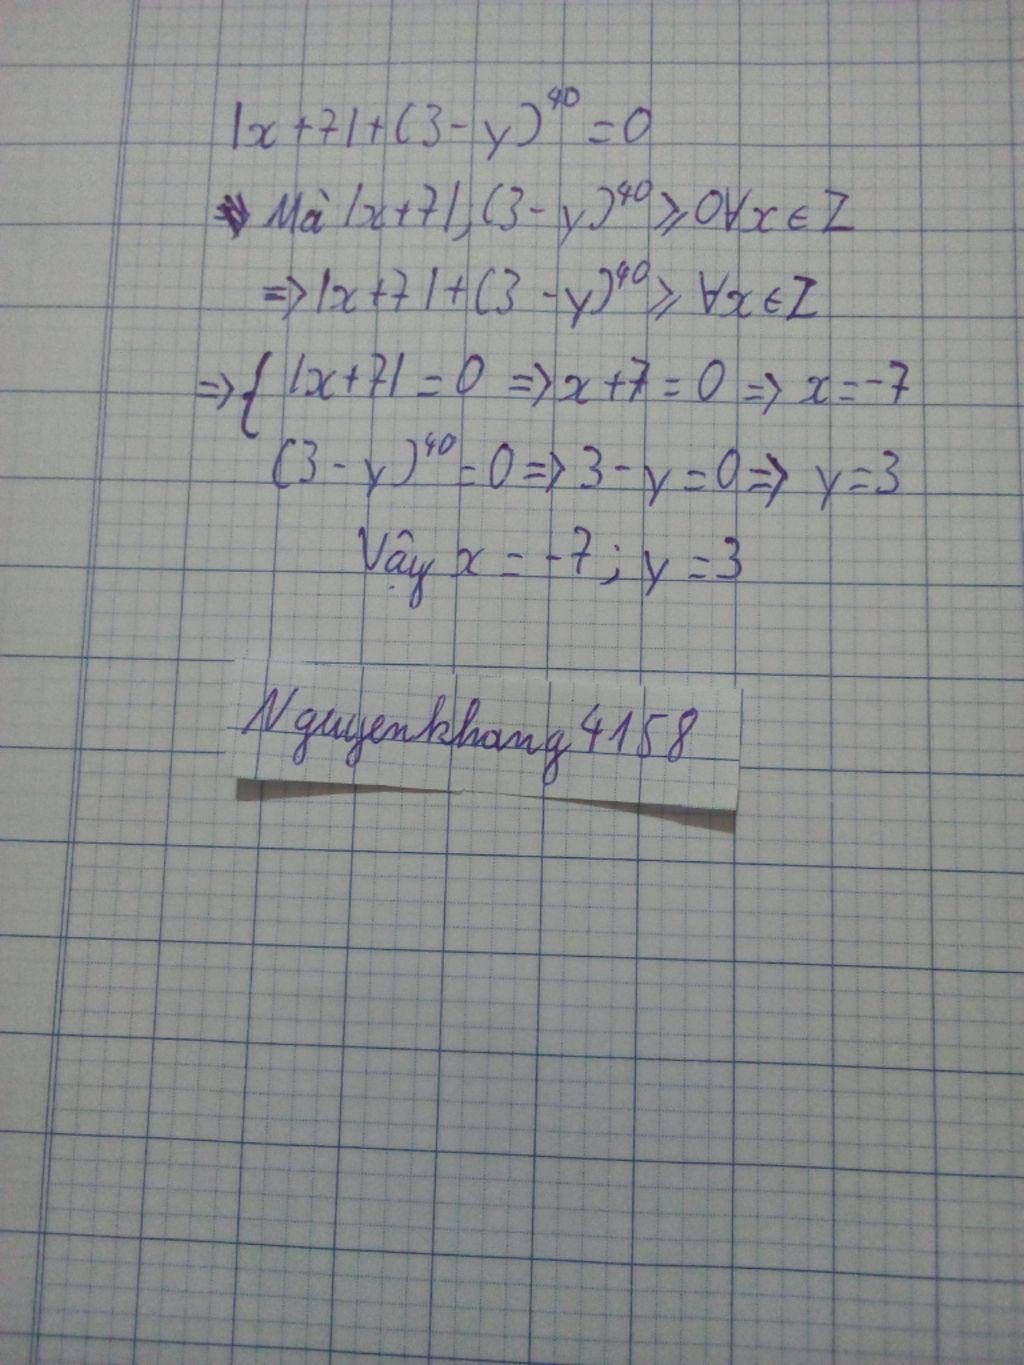 |x+7|+(3-y)^40 =0
Mà |x+7|;(3-y)^40 ⩾0∀x∈Z
=>|x+7|+(3-y)^40 ⩾ ∀x∈Z
=>{ |x+7|=0 =>x+7=0=> x=-7
(3-y)^40=0=>3-y=0=> y=3
Vậy x=-7; y=3
Nguyenkhang4158